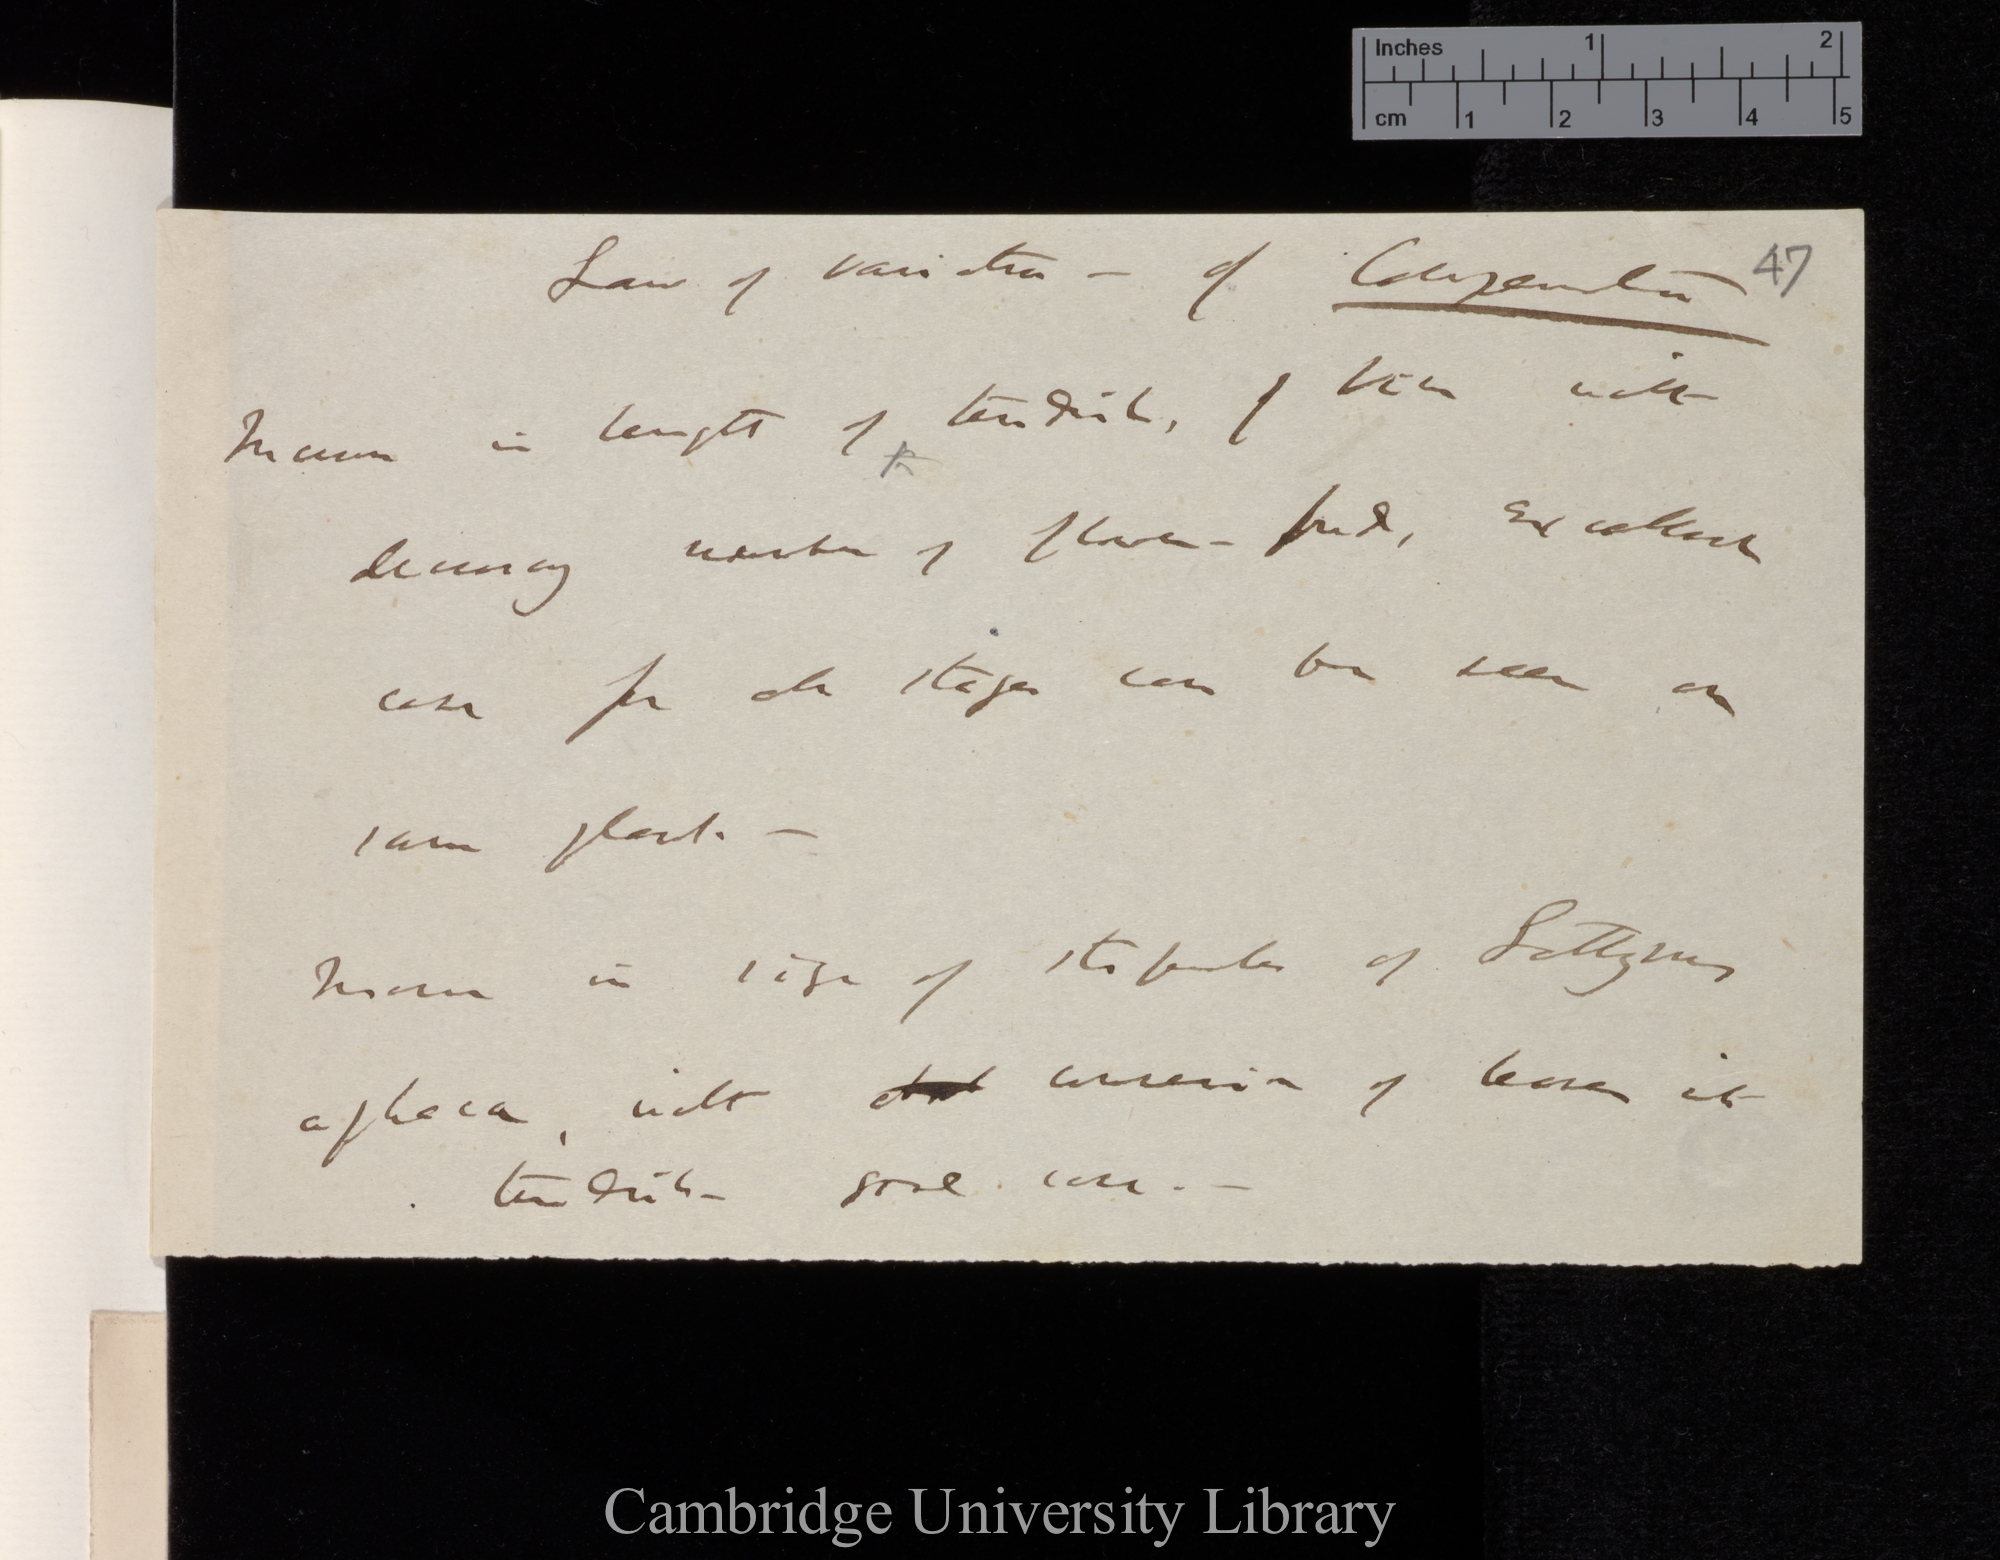 Inches 1 2
cm 1 2 3 4 5
47
Law of variation — of Compensation
Increase in length of tendrils, of Vine with
decreasing number of flower-buds, excellent
case for all stages can be seen on
same plant. —
Increase in size of stipules of Lathyrus
aphaca, with conversion of leaves into
tendrils — good case. —
Cambridge University Library